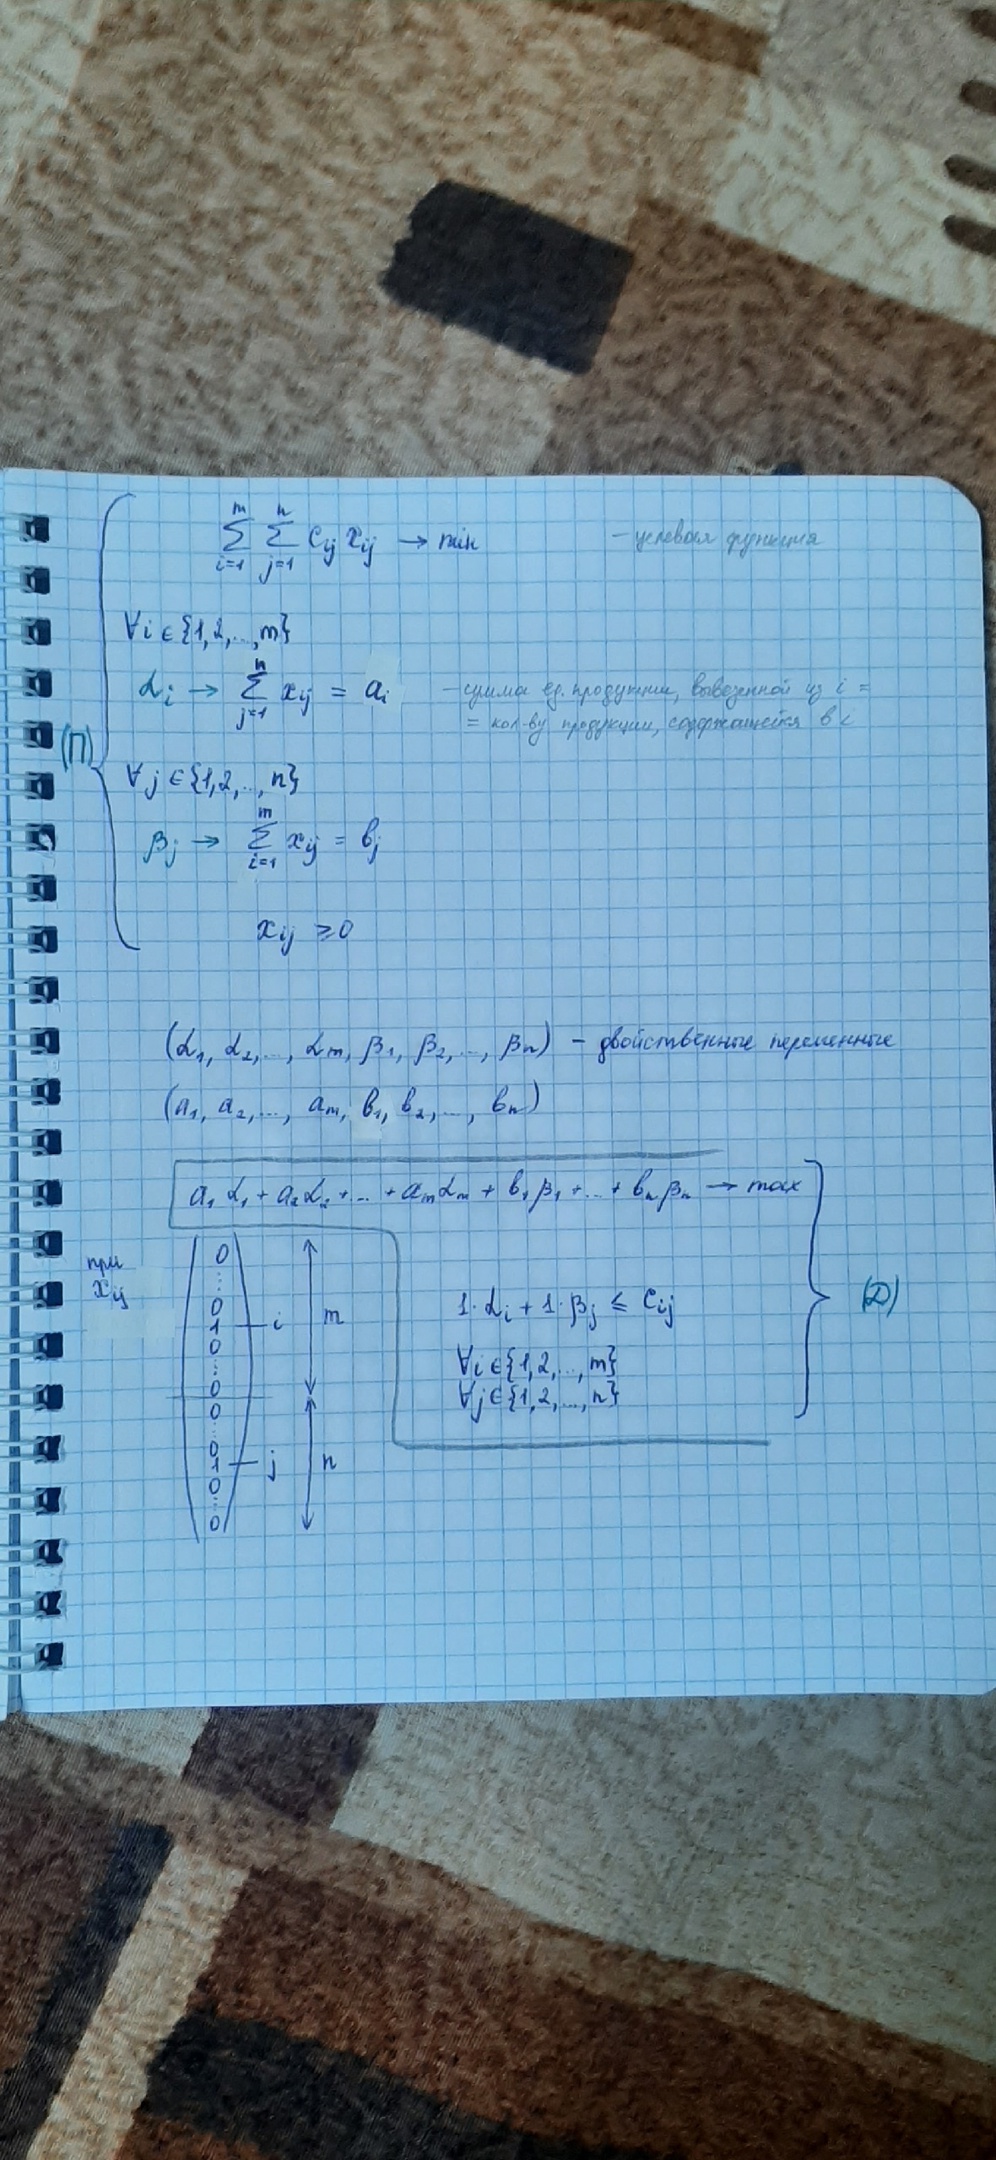 m n
∑ ∑ cij xij → min – целевая функция
i=1 j=1
∀i ∈ {1,2,...,m}
n
αi → ∑ xij = ai – сумма ед. продукции, вывезенной из i =
j=1 = кол-ву продукции, содержащейся в i
(П)
∀j ∈ {1,2,..,n}
m
βj → ∑ xij = bj
i=1
xij ≥ 0
(α1, α2,..., αm, β1, β2,..., βn) – двойственные переменные
(a1, a2,..., am, b1, b2,..., bn)
a1 α1 + a2 α2 +...+ am αm + b1 β1 +...+ bn βn → max
при
xij
0
...
0
1 – i m
0
...
0
0
...
0
1 – j n
0
...
0
1·αi + 1·βj ≤ cij
∀i ∈ {1,2,...,m}
∀j ∈ {1,2,...,n}
(Д)